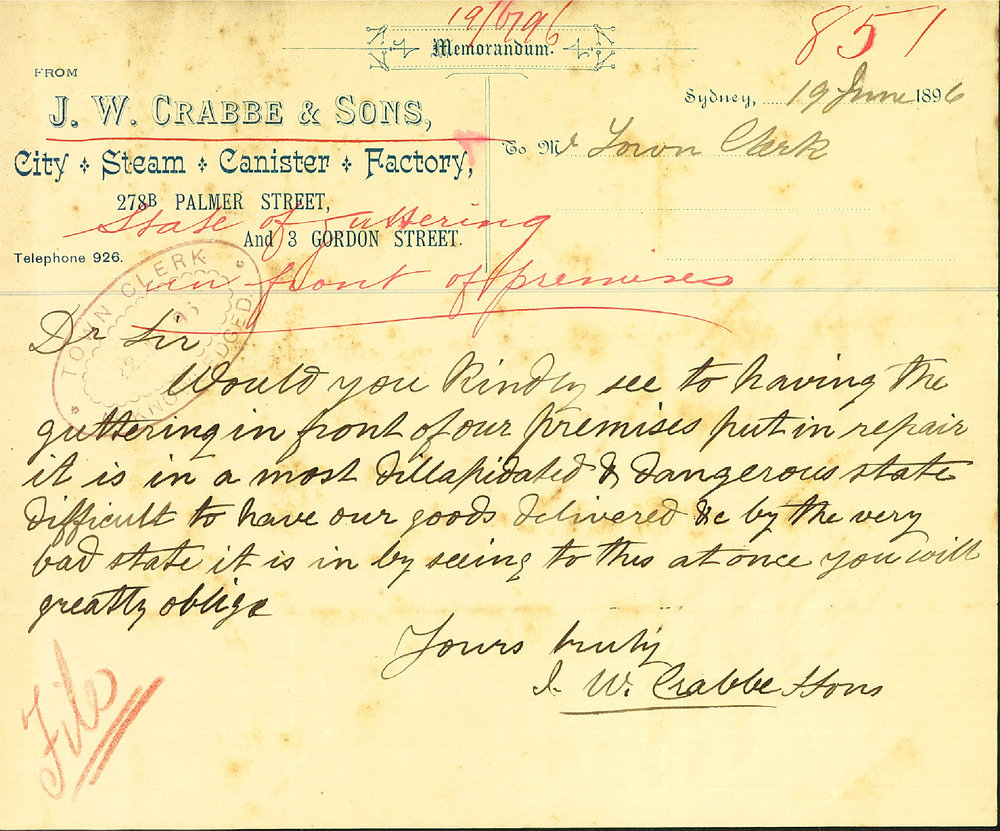 19/6/96
851
Memorandum.
FROM
J. W. CRABBE & SONS,
City Steam Canister Factory,
278B PALMER STREET,
And 3 GORDON STREET.
Telephone 926.
Sydney, 19 June 1896
To Mr Town Clerk
State of guttering
in front of premises
TOWN CLERK
ACKNOWLEDGED
Dr Sir
Would you kindly see to having the
guttering in front of our premises put in repair
it is in a most dillapidated & dangerous state
difficult to have our goods delivered &c by the very
bad state it is in by seeing to this at once you will
greatly oblige
Yours truly
J. W. Crabbe & Sons
File